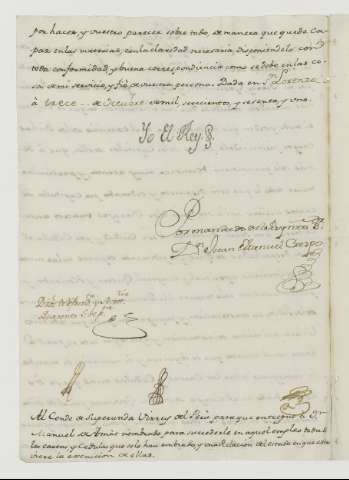 por hacer, y vuestro parecer sobre todo, de manera que quede
en las materias, con la claridad necesaria, disponiendolo con
toda conformidad, y buena correspondencia como se debe en las co-
sas de mi servicio, y de vuestra persona. Dada en Sn. Lorenzo
à trece de Octubre de mil, setecientos, y sesenta y uno.
Yo El Rey
Por mandado del Rey nro. Sr.
Dn. Juan Manuel Crespo
Al Conde de Superunda Virrey del Perú para que entregue à Dn.
Manuel de Amàt nombrado para succederle en aquel empleo todas
las cartas, y Cedulas que se le han embiado, y una Relacion del estado en que estu-
viere la execucion de ellas.